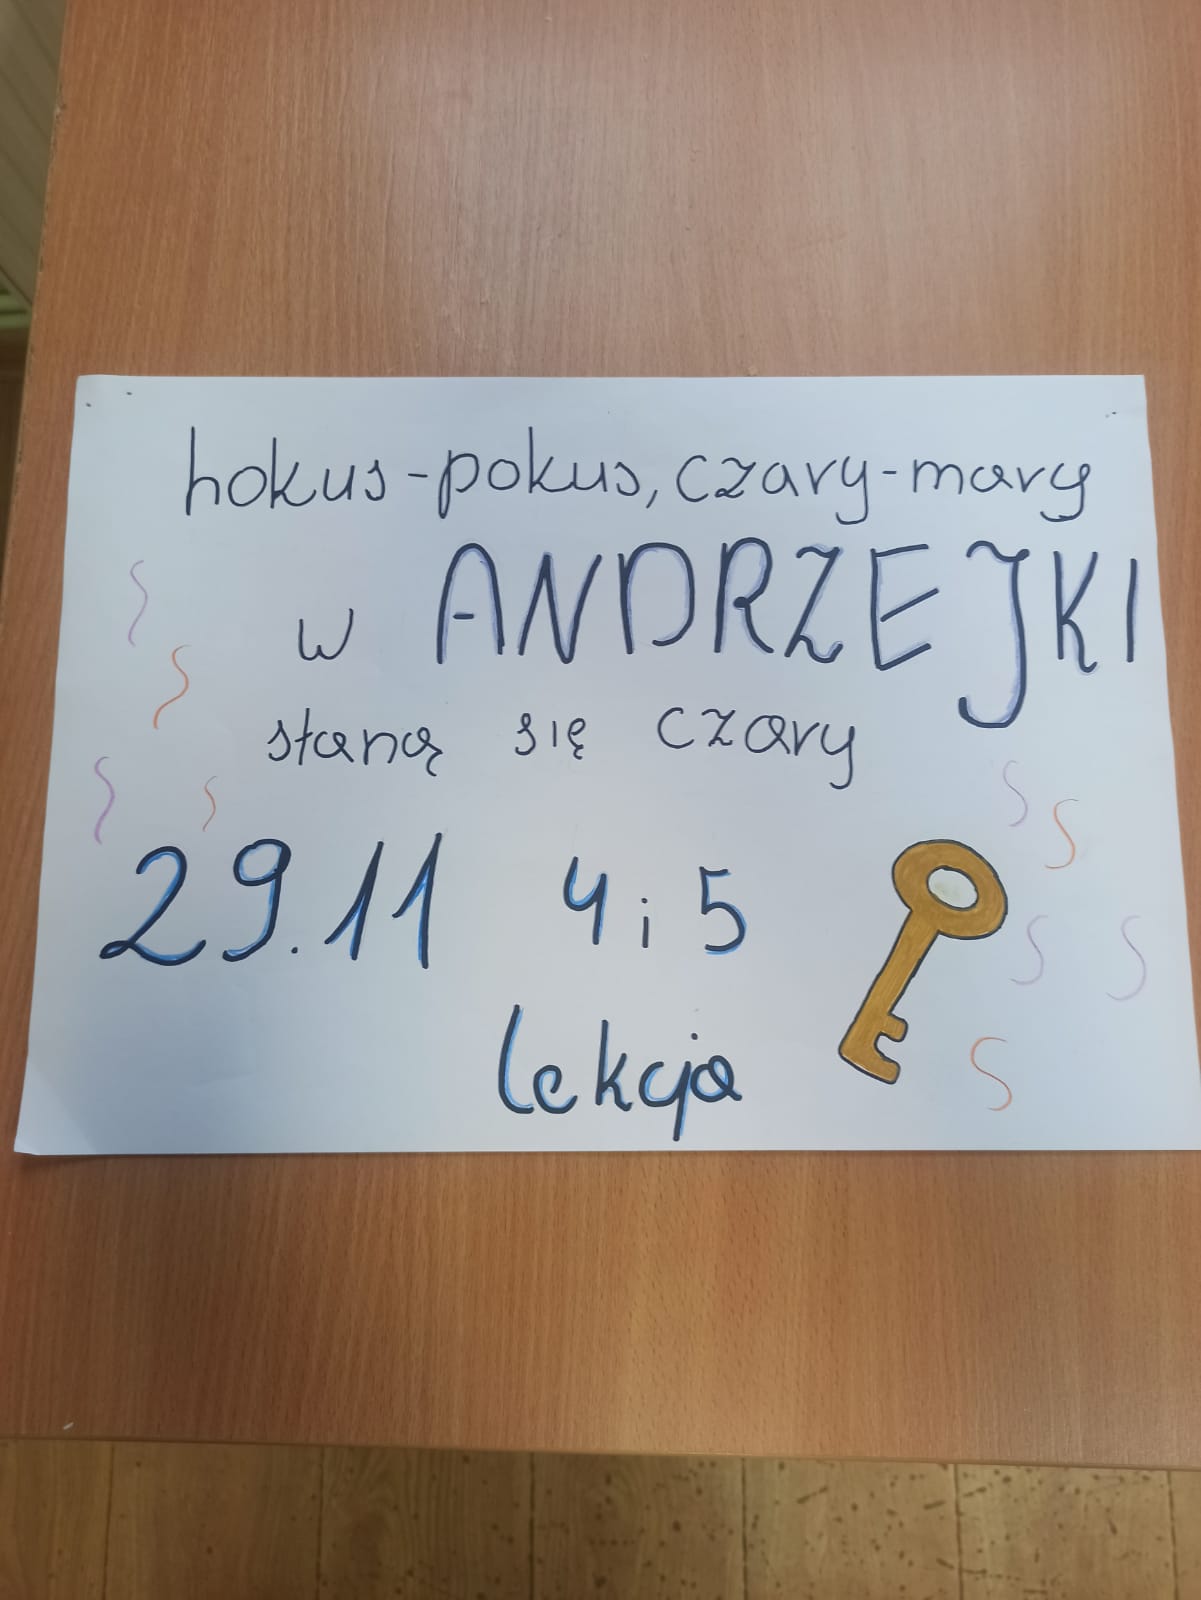 hokus-pokus, czary-mary
w ANDRZEJKI
staną się czary
29.11 4 i 5
lekcja